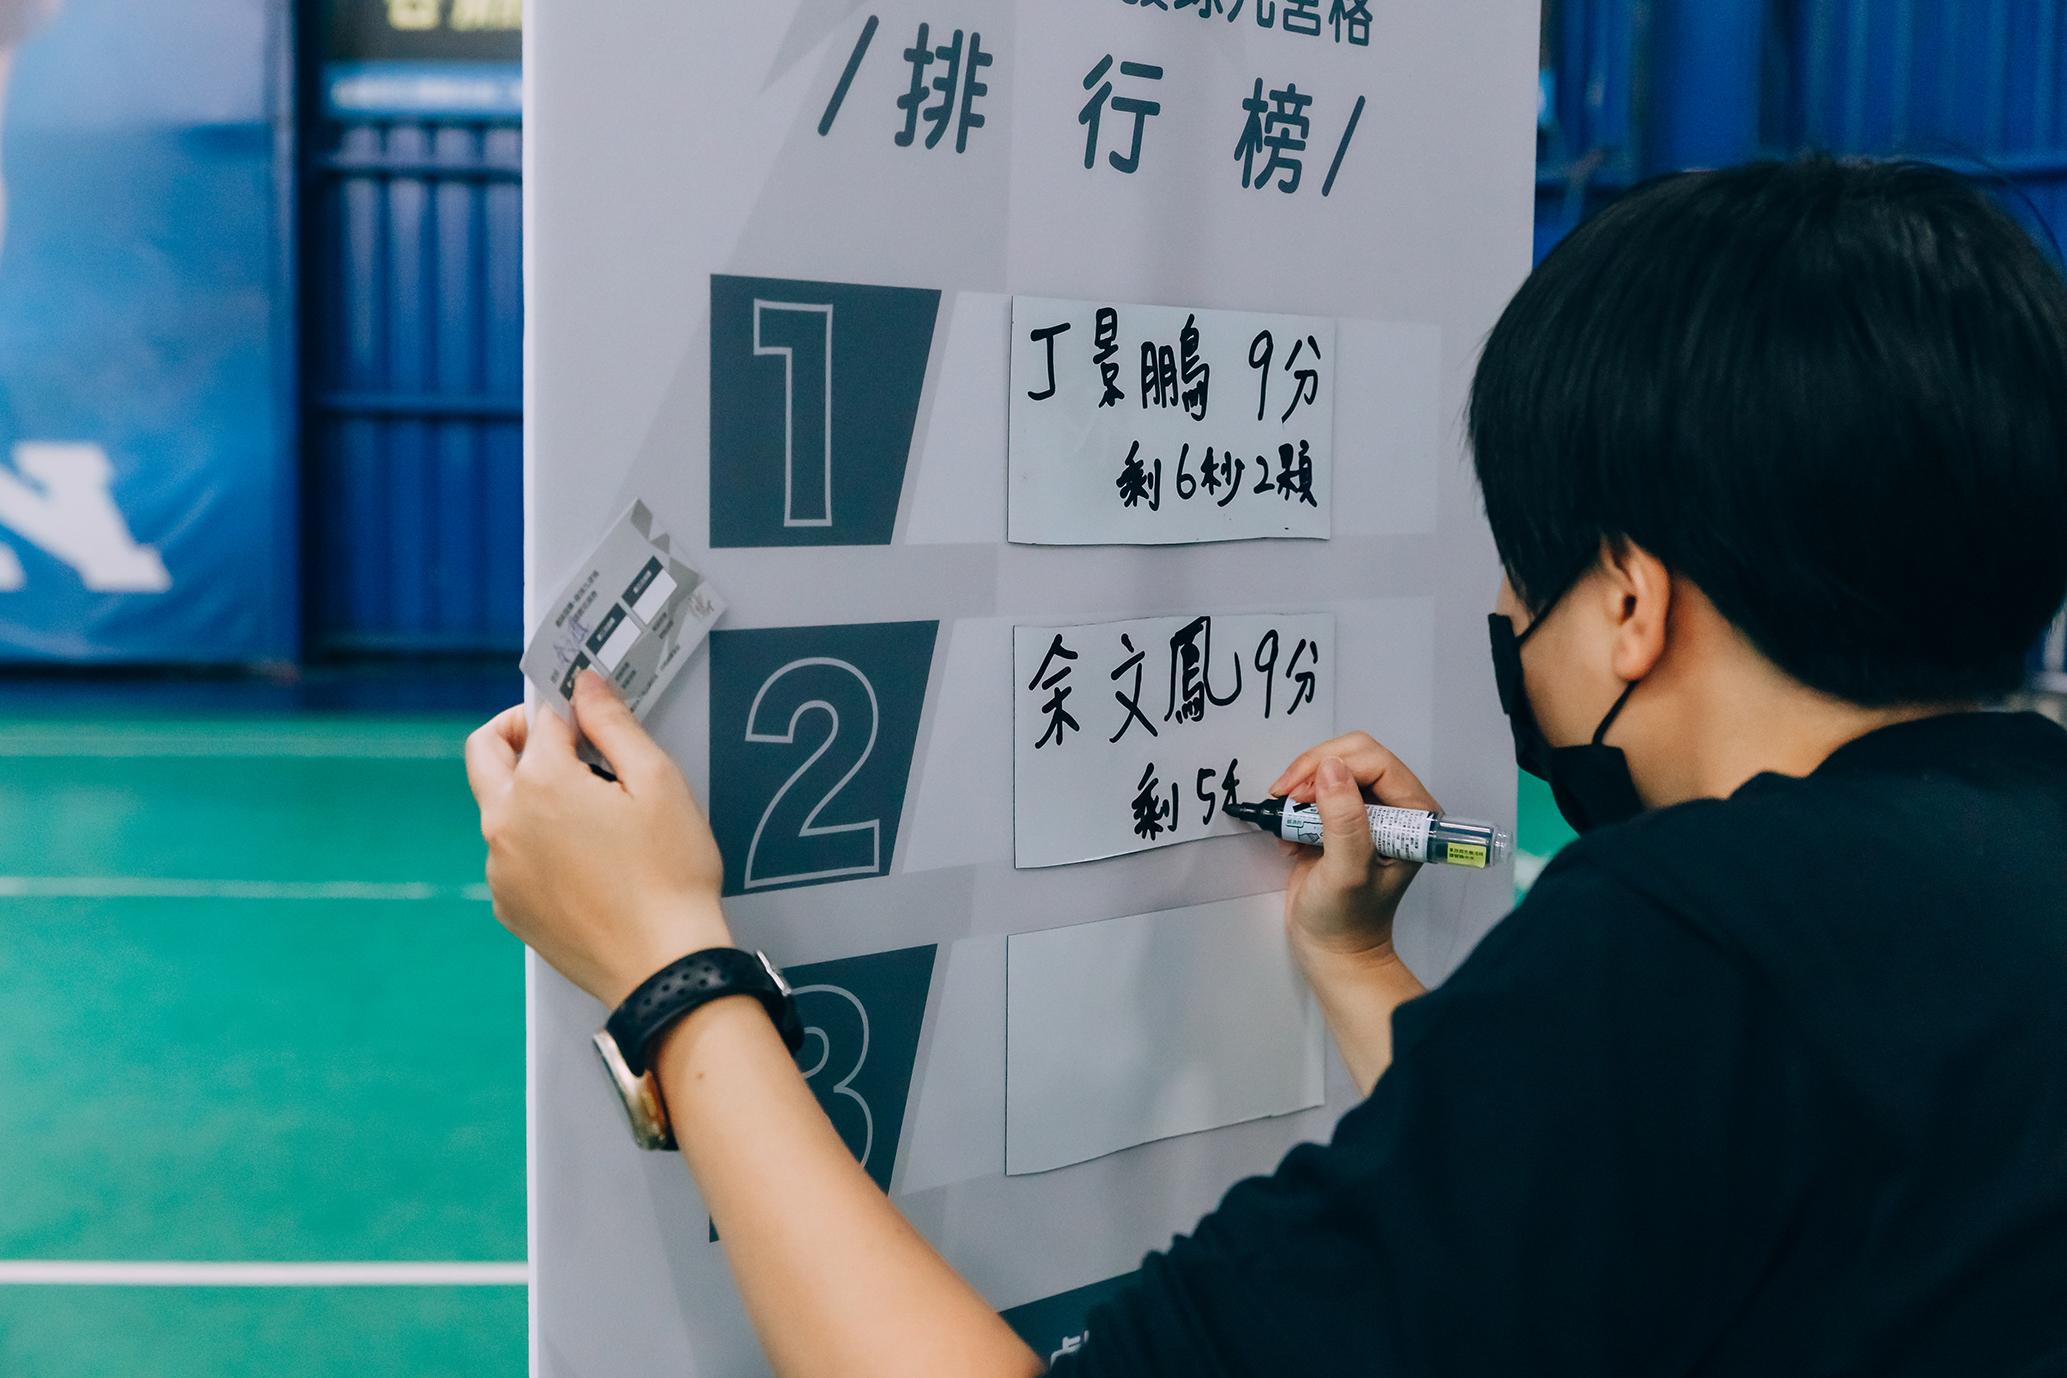 球九宮格
/排行榜/
1
丁景鵬 9分
剩6秒2顆
2
余文鳳 9分
剩5
3